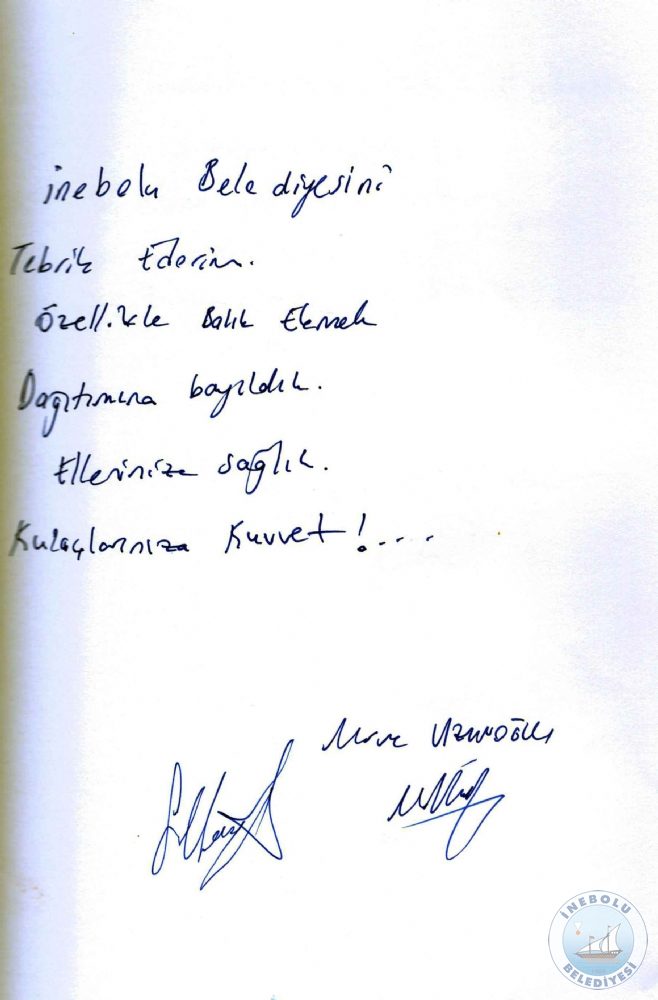 inebolu Belediyesini
Tebrik Ederim.
Özellikle Balık Ekmek
Dağıtımına bayıldık.
Ellerinize sağlık.
Kulaçlarınıza Kuvvet!....
Merve Uzunoğlu
İNEBOLU
BELEDİYESİ